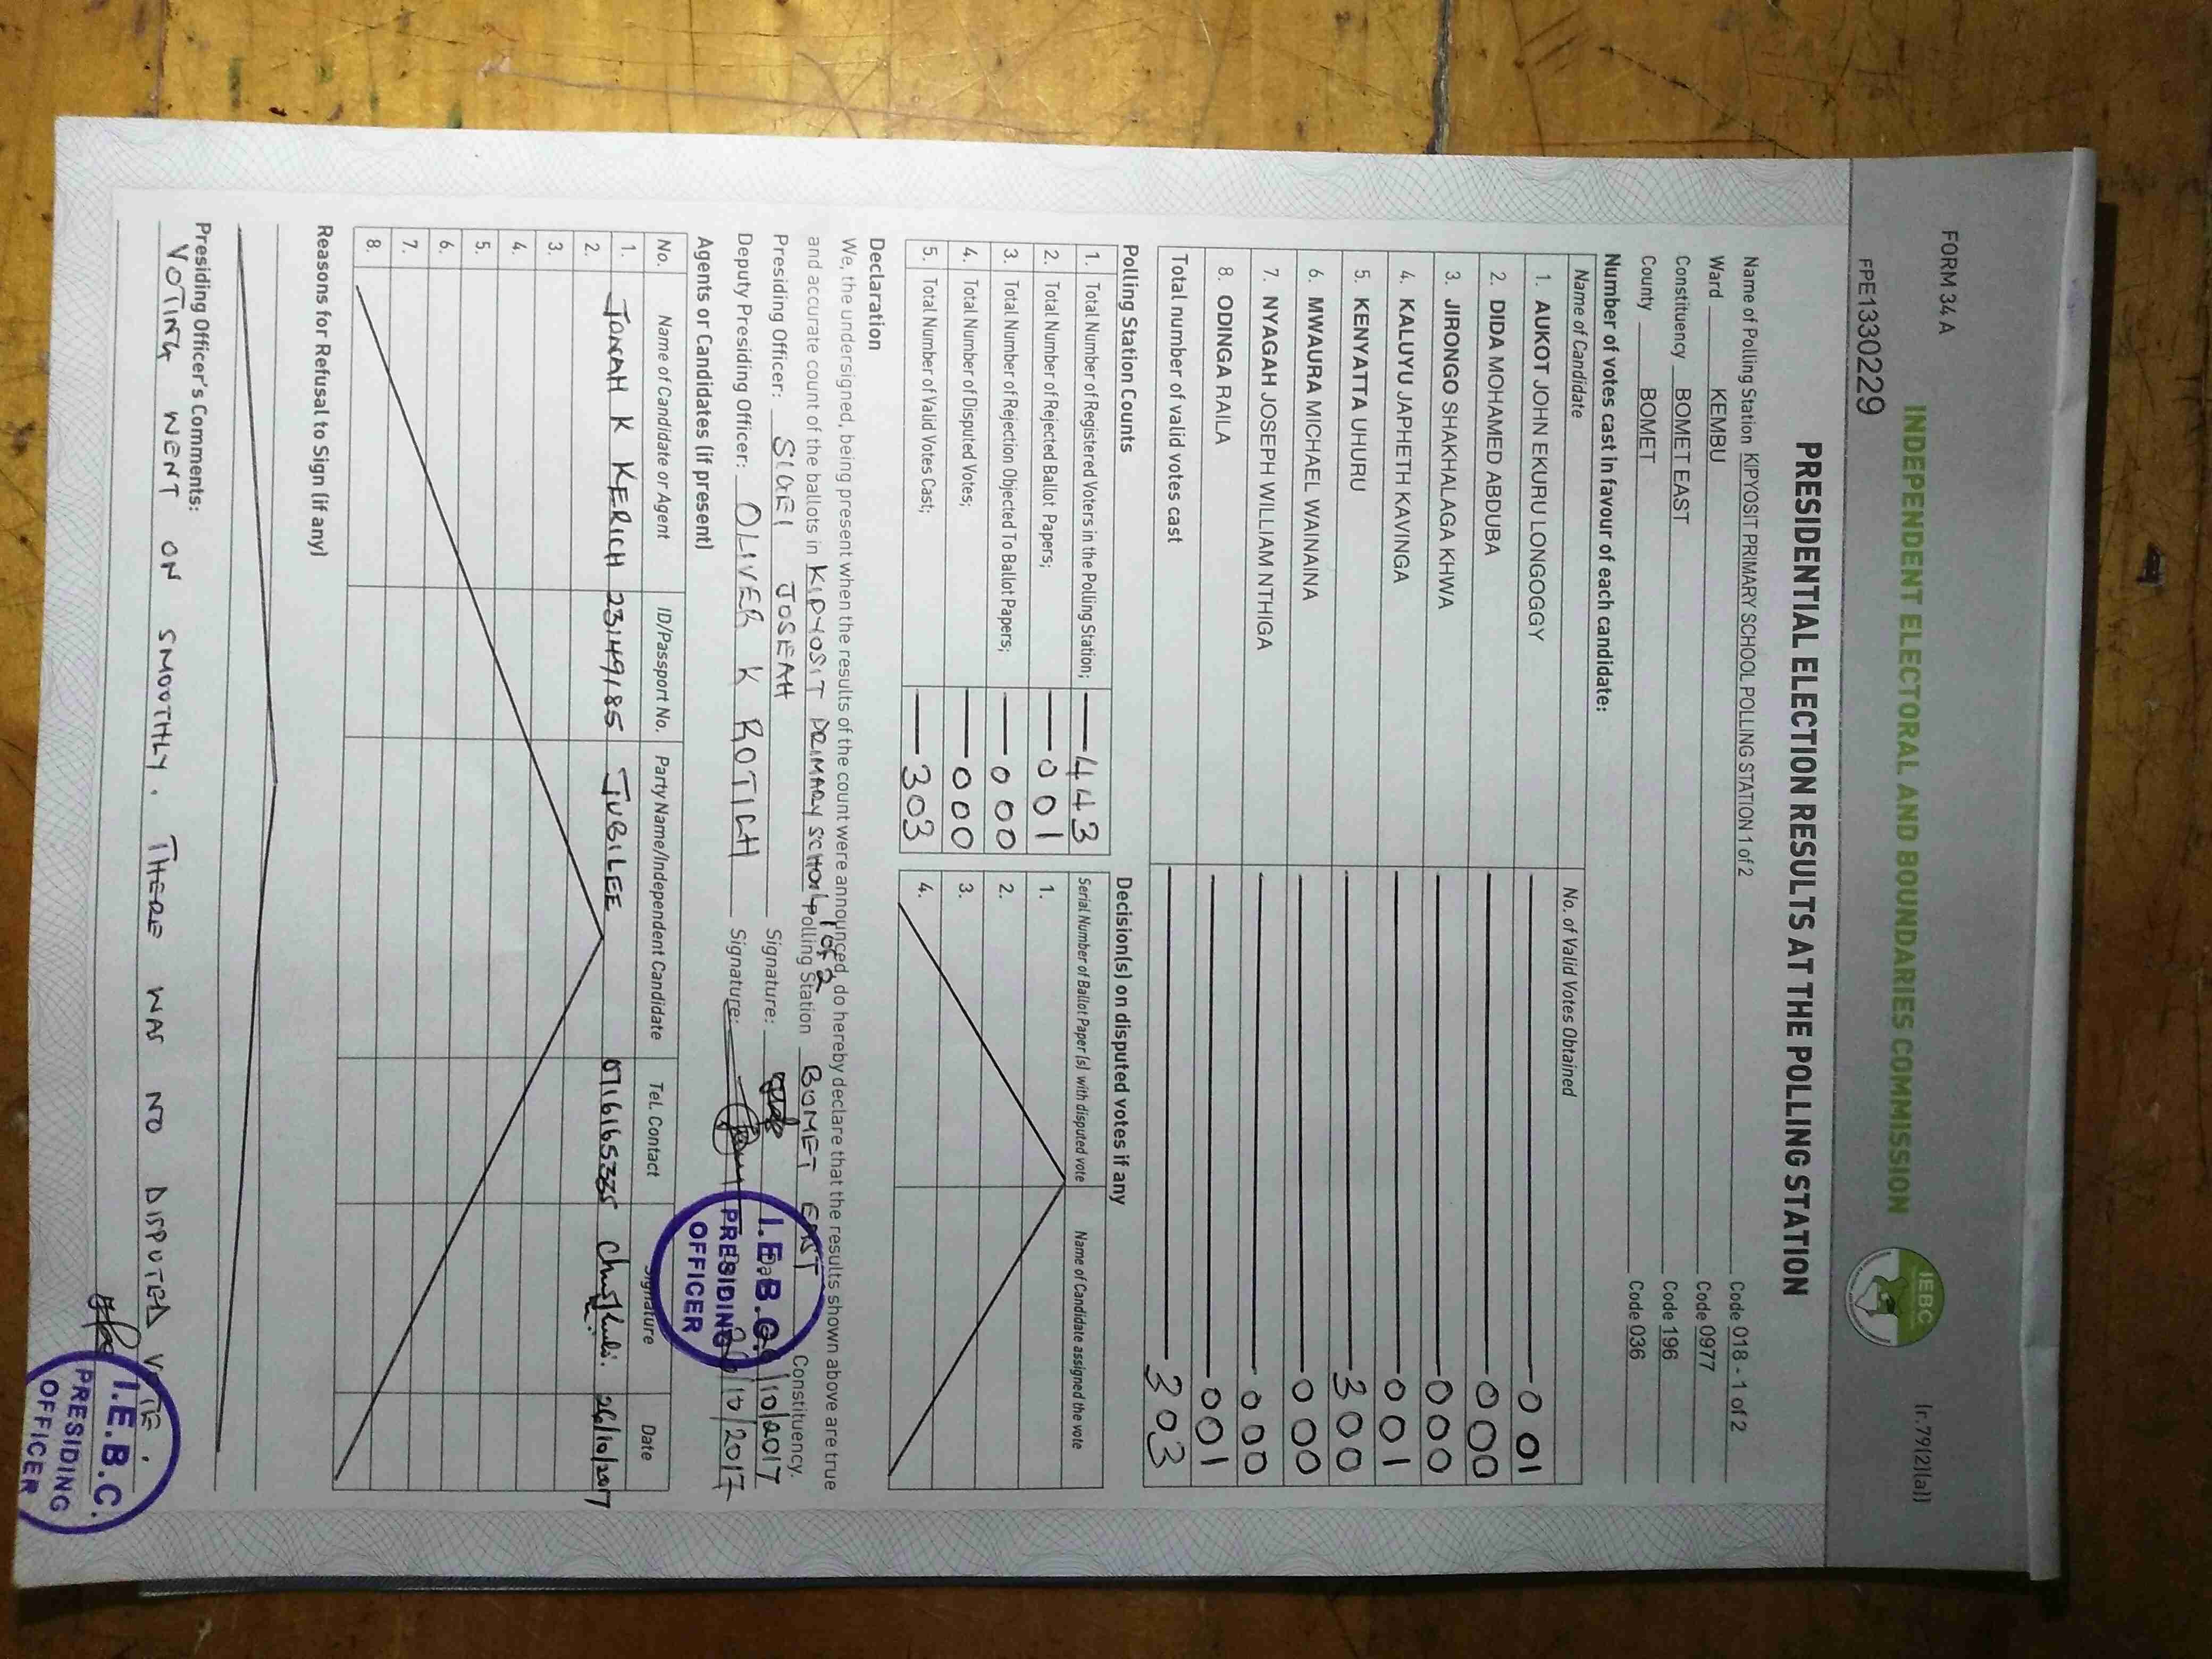 FORM 34 A
[r.79(2)(a)]
INDEPENDENT ELECTORAL AND BOUNDARIES COMMISSION
IEBC
FPE1330229
PRESIDENTIAL ELECTION RESULTS AT THE POLLING STATION
Name of Polling Station KIPYOSIT PRIMARY SCHOOL POLLING STATION 1 of 2 Code 018 - 1 of 2
Ward KEMBU Code 0977
Constituency BOMET EAST Code 196
County BOMET Code 036
Number of votes cast in favour of each candidate:
Name of Candidate No. of Valid Votes Obtained
1. AUKOT JOHN EKURU LONGOGGY 001
2. DIDA MOHAMED ABDUBA 000
3. JIRONGO SHAKHALAGA KHWA 000
4. KALUYU JAPHETH KAVINGA 001
5. KENYATTA UHURU 300
6. MWAURA MICHAEL WAINAINA 000
7. NYAGAH JOSEPH WILLIAM NTHIGA 000
8. ODINGA RAILA 001
Total number of valid votes cast 303
Polling Station Counts
1. Total Number of Registered Voters in the Polling Station; 443
2. Total Number of Rejected Ballot Papers; 001
3. Total Number of Rejection Objected To Ballot Papers; 000
4. Total Number of Disputed Votes; 000
5. Total Number of Valid Votes Cast; 303
Decision(s) on disputed votes if any
Serial Number of Ballot Paper (s) with disputed vote Name of Candidate assigned the vote
1.
2.
3.
4.
Declaration
We, the undersigned, being present when the results of the count were announced, do hereby declare that the results shown above are true
1 of 2
and accurate count of the ballots in KIPYOSIT PRIMARY SCHOOL Polling Station BOMET EAST Constituency.
Presiding Officer: SIGEI JOSEAH Signature: /10/2017
Deputy Presiding Officer: OLIVER K ROTICH Signature: /10/2017
I.E.B.C.
PRESIDING
OFFICER
Agents or Candidates (if present)
No. Name of Candidate or Agent ID/Passport No. Party Name/Independent Candidate Tel. Contact Signature Date
1. JONAH K KERICH 23149185 JUBILEE 0716165335 26/10/2017
2.
3.
4.
5.
6.
7.
8.
Reasons for Refusal to Sign (if any)
Presiding Officer's Comments:
VOTING WENT ON SMOOTHLY. THERE WAS NO DISPUTED VOTE.
I.E.B.C.
PRESIDING
OFFICER